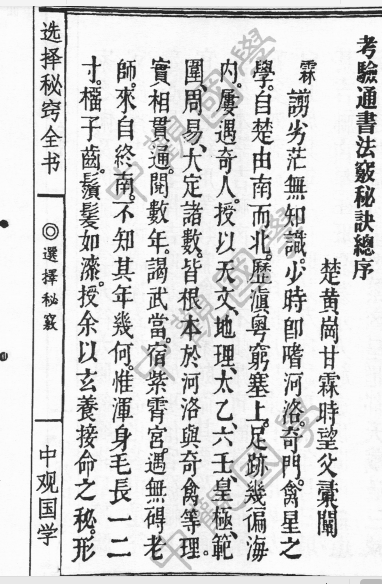 考驗通書法竅秘訣總序
楚黃崗甘霖時望父彚闡
霖謭劣茫無知識。少時卽嗜河洛。奇門。禽星之
學。自楚由南而北。歷滇粤窮塞上。足跡幾徧海
內。屢遇奇人。授以天文。地理。太乙。六壬。皇極。範
圍。周易。大定諸數。皆根本於河洛與奇禽等理。
實相貫通。閱數年。謁武當。宿紫霄宮。遇無碍老
師。來自終南。不知其年幾何。惟渾身毛長一二
寸。榴子齒。鬚髮如漆。授余以玄養接命之秘。形
选择秘窍全书
◎選擇秘竅
中观国学
中觀國學
中觀國學
中觀國學